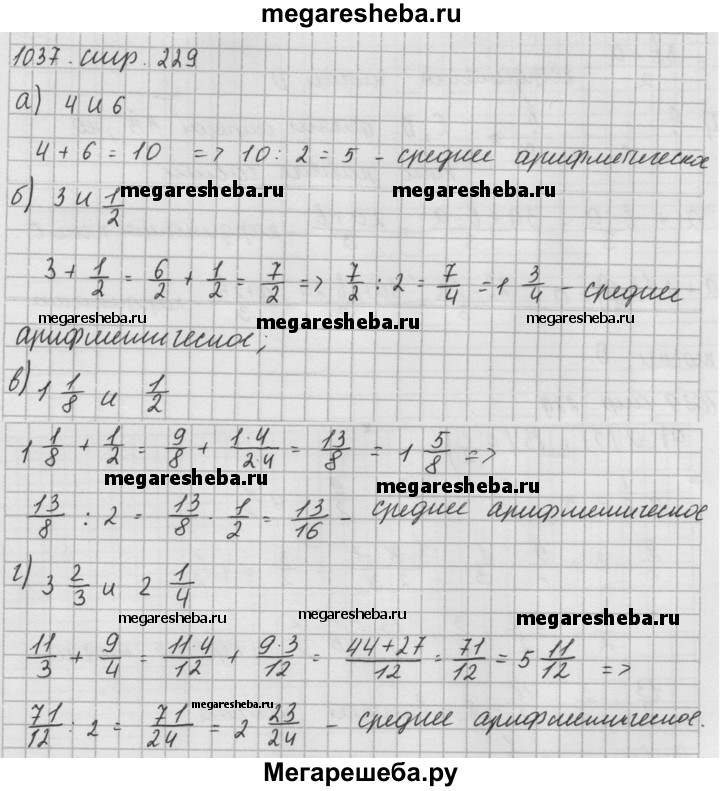 megaresheba.ru
1037. стр. 229
а) 4 и 6
4 + 6 = 10 => 10 : 2 = 5 - среднее арифметическое
megaresheba.ru megaresheba.ru
б) 3 и 1/2
3 + 1/2 = 6/2 + 1/2 = 7/2 => 7/2 : 2 = 7/4 = 1 3/4 - среднее
megaresheba.ru megaresheba.ru megaresheba.ru
арифметическое;
в) 1 1/8 и 1/2
1 1/8 + 1/2 = 9/8 + 1·4/2·4 = 13/8 = 1 5/8 =>
megaresheba.ru megaresheba.ru
13/8 : 2 = 13/8 · 1/2 = 13/16 - среднее арифметическое
г) 3 2/3 и 2 1/4
megaresheba.ru megaresheba.ru megaresheba.ru
11/3 + 9/4 = 11·4/12 + 9·3/12 = 44+27/12 = 71/12 = 5 11/12 =>
megaresheba.ru
71/12 : 2 = 71/24 = 2 23/24 - среднее арифметическое.
Мегарешеба.ру